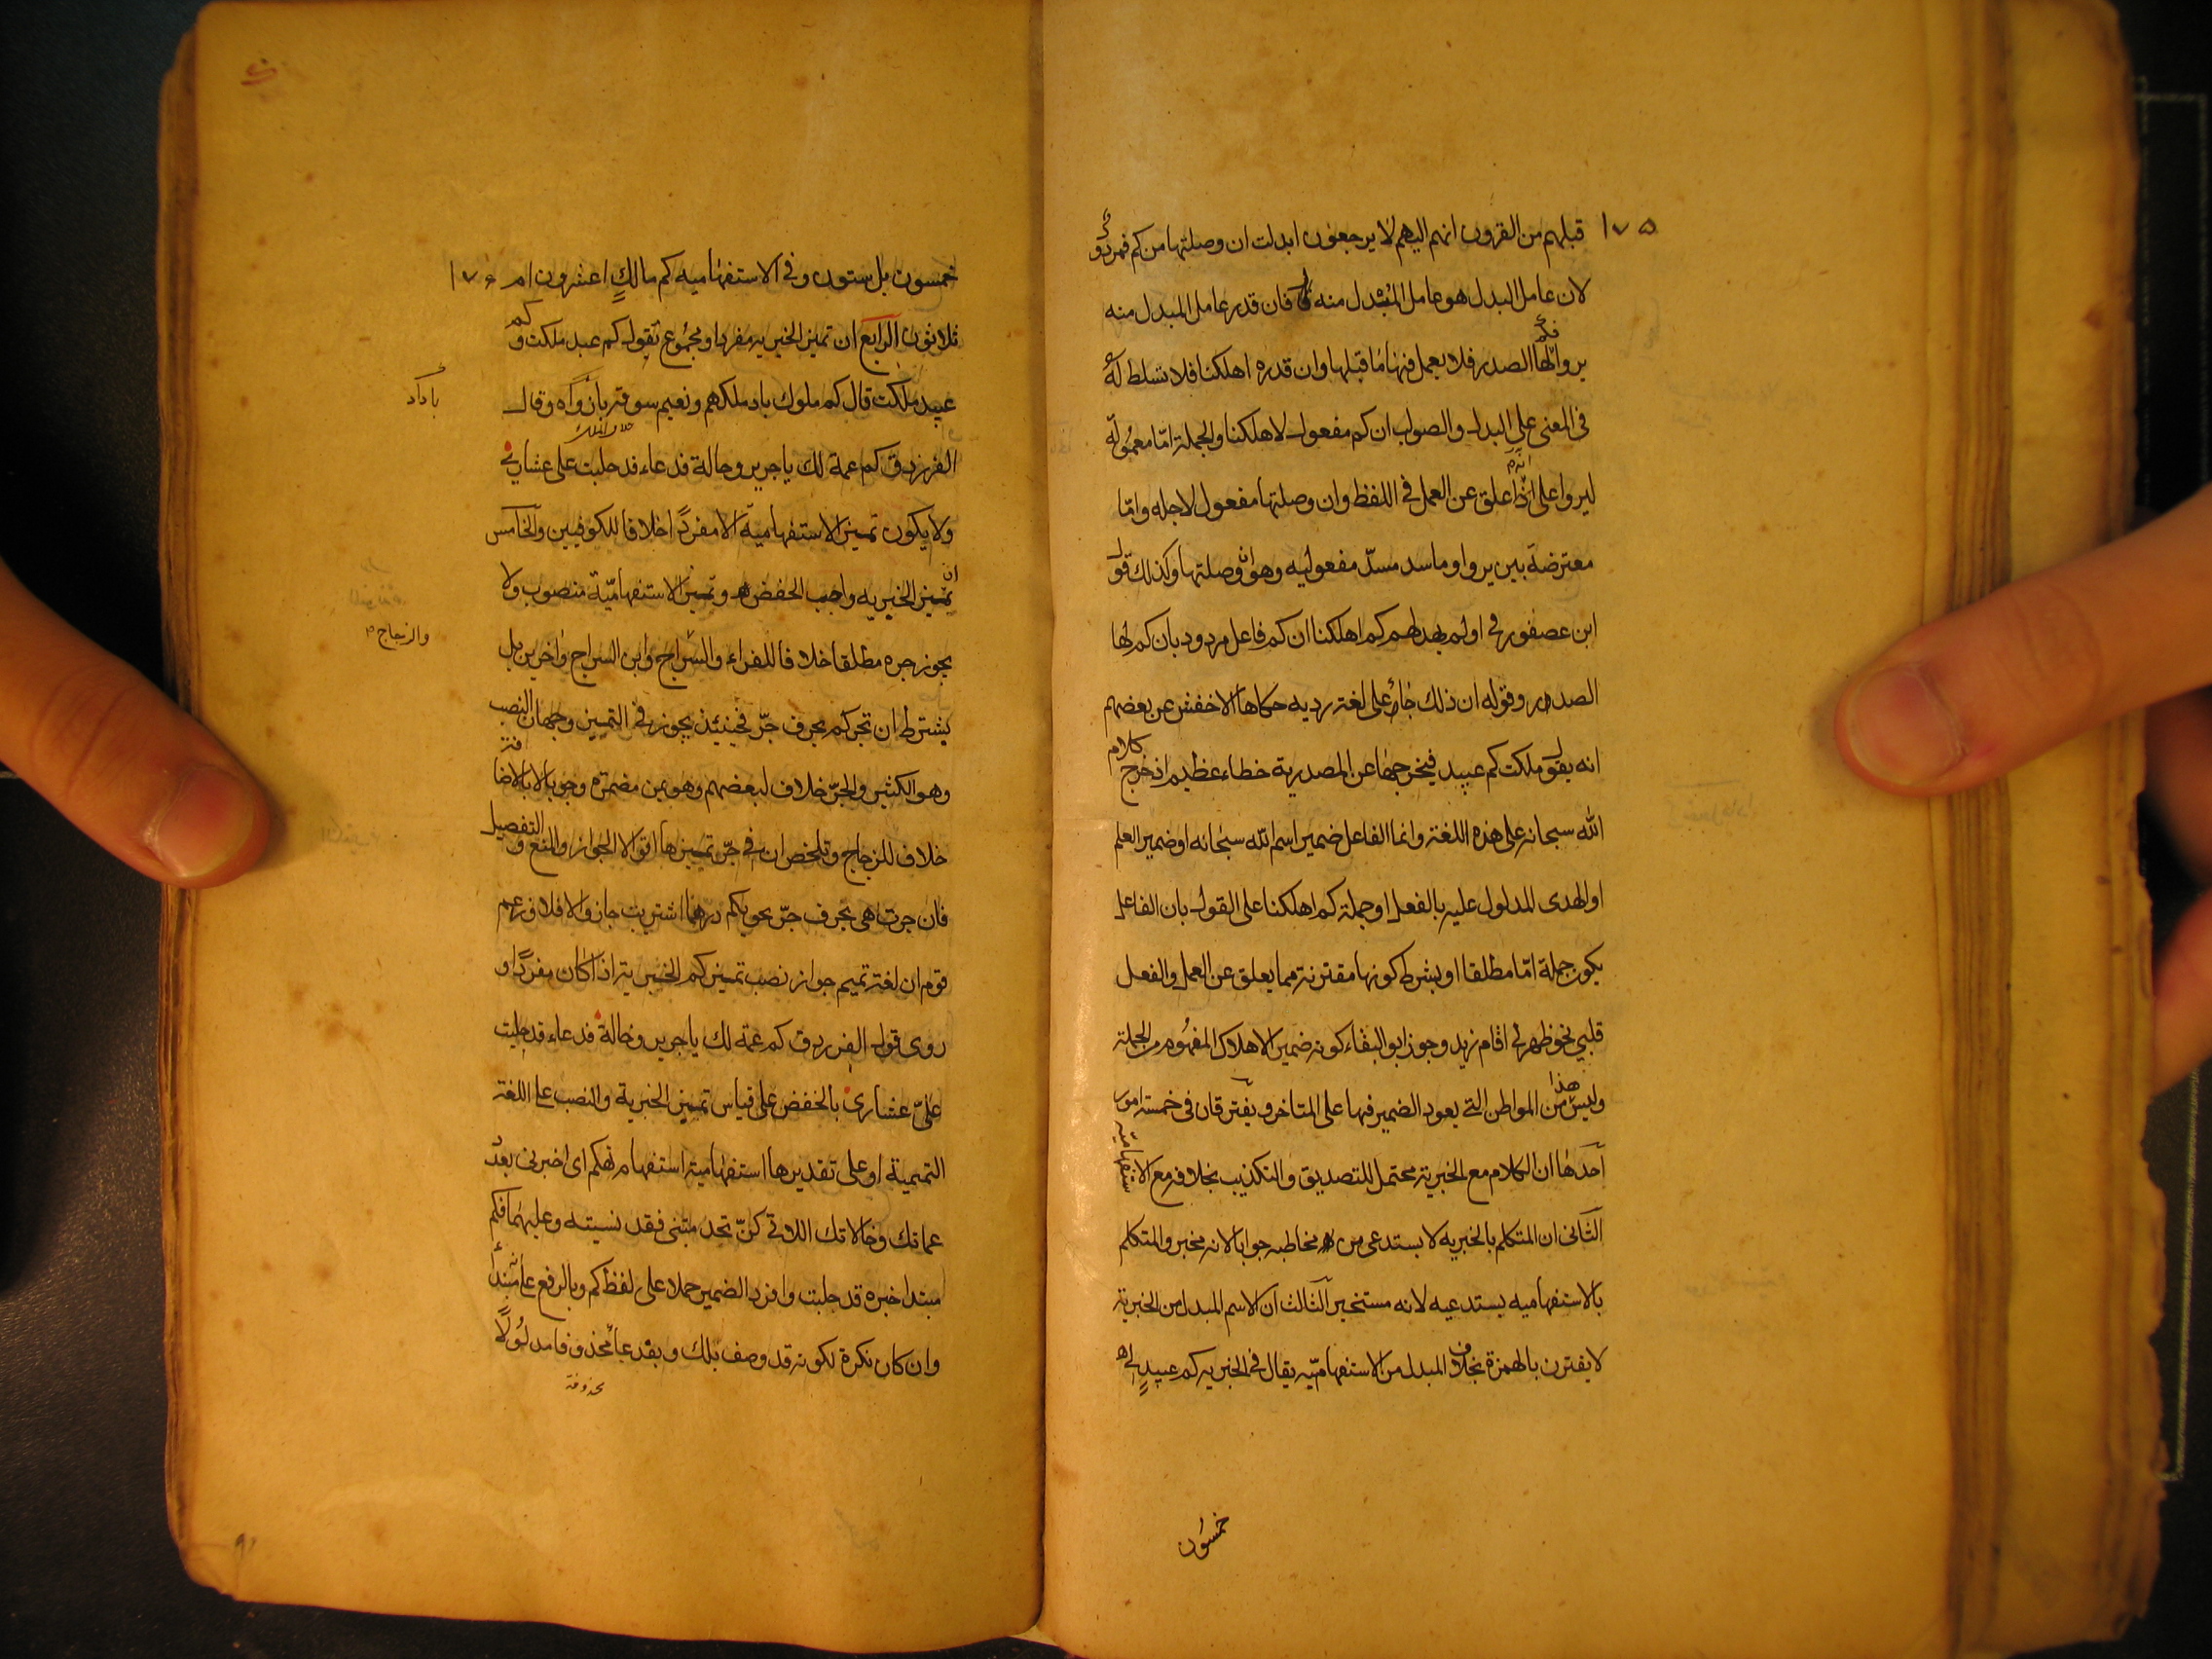 ١٧٥
قبلهم من القرون انهم اليهم لا يرجعون ابدلت ان وصلتها من كم فمردود
لان عامل البدل هو عامل المبدل منه فان قدر عامل المبدل منه
يروا فكم لها الصدر فلا يعمل فيها ما قبلها وان قدره اهلكنا فلا تسلط له
فى المعنى على البدل والصواب ان كم مفعول لاهلكنا والجملة امّا معمولة
ليروا على انه علق عن العمل فى اللفظ وان وصلتها مفعول لاجله وامّا
معترضة بين يروا وما سد مسدّ مفعوليه وهو ان وصلتها وكذلك قول
ابن عصفور فى اولم يهد لهم كم اهلكنا ان كم فاعل مردود بان كم لها
الصدر وقوله ان ذلك جاء على لغة رديه حكاها الاخفش عن بعضهم
انه يقول ملكت كم عبيد فيخرجها عن المصدرية خطاء عظيم اذ خرج كلام
الله سبحانه على هذه اللغة وانما الفاعل ضمير اسم الله سبحانه او ضمير العلم
او الهدى المدلول عليه بالفعل او جملة كم اهلكنا على القول بان الفاعل
يكون جملة امّا مطلقا او بشرط كونها مقترنة مما يعلق عن العمل والفعل
قلبي نحو ظهر لى اقام زيد وجوز ابو البقاء كونه ضمير الاهلاك المفهوم من الجملة
وليس هذا من المواطن التى يعود الضمير فيها على المتاخر ويفترقان فى خمسة امور
احدها ان الكلام مع الخبرية محتمل للتصديق والتكذيب بخلافه مع الاستفهاميّة
الثانى ان المتكلم بالخبريه لا يستدعى من مخاطبه جوابا لانه مخبر والمتكلم
بالاستفهاميه يستدعيه لانه مستخبر الثالث ان الاسم المبدل من الخبرية
لا يقترن بالهمزة بخلاف المبدل من الاستفهاميّه يقال فى الخبريه كم عبيد لى
خمسون
١٧٦
خمسون بل ستون وفى الاستفهاميه كم مالك اعشرون ام
ثلاثون الرابع ان تميز الخبريه مفرد او مجموع تقول كم عبد ملكت وكم
عبيد ملكت قال كم ملوك باد ملكهم ونعيم سوقة بادوا وقال
باداد
الفرزدق كم عمة لك يا جرير وخالة فدعاء قد حلبت على عشارى
ولا يكون تميز الاستفهاميّة الا مفردًا خلافا للكوفيين والخامس
ان تميز الخبريه واجب الخفض وتميز الاستفهاميّة منصوب ولا
والزجاج
يجوز جره مطلقا خلافا للفراء والسراج وابن السراج واخرين بل
يشترط ان تجر كم بحرف جرّ فحينئذ يجوز فى التميز وجهان النصب
وهو الكثير والجرّ خلاف لبعضهم وهو بمن مضمرة وجوبا لا بالاضافة
خلاف للزجاج وتلخص ان فى جرّ تميزها اقوالا الجواز والمنع والتفصيل
فان جرت هى بحرف جرّ نحو بكم درهما اشتريت جاز والا فلا وزعم
قوم ان لغة تميم جواز نصب تميز كم الخبرية اذا كان مفردًا و
روى قول الفرزدق كم عمة لك يا جرير وخالة فدعاء قد حلبت
علىّ عشارى بالخفض على قياس تميز الخبرية والنصب على اللغة
التميمية او على تقديرها استفهامية استفهام تهكم اى اخبرنى بعدد
عماتك وخالاتك اللاتى كنّ يخدمتنى فقد نسيته وعليهما فكم
مبتدا خبره قد حلبت وافرد الضمير حملا على لفظ كم وبالرفع على انه مبتدا
وان كان نكرة لكونه قد وصف بلك وبفدعاء محذوفا مدلولًا
محذوفة